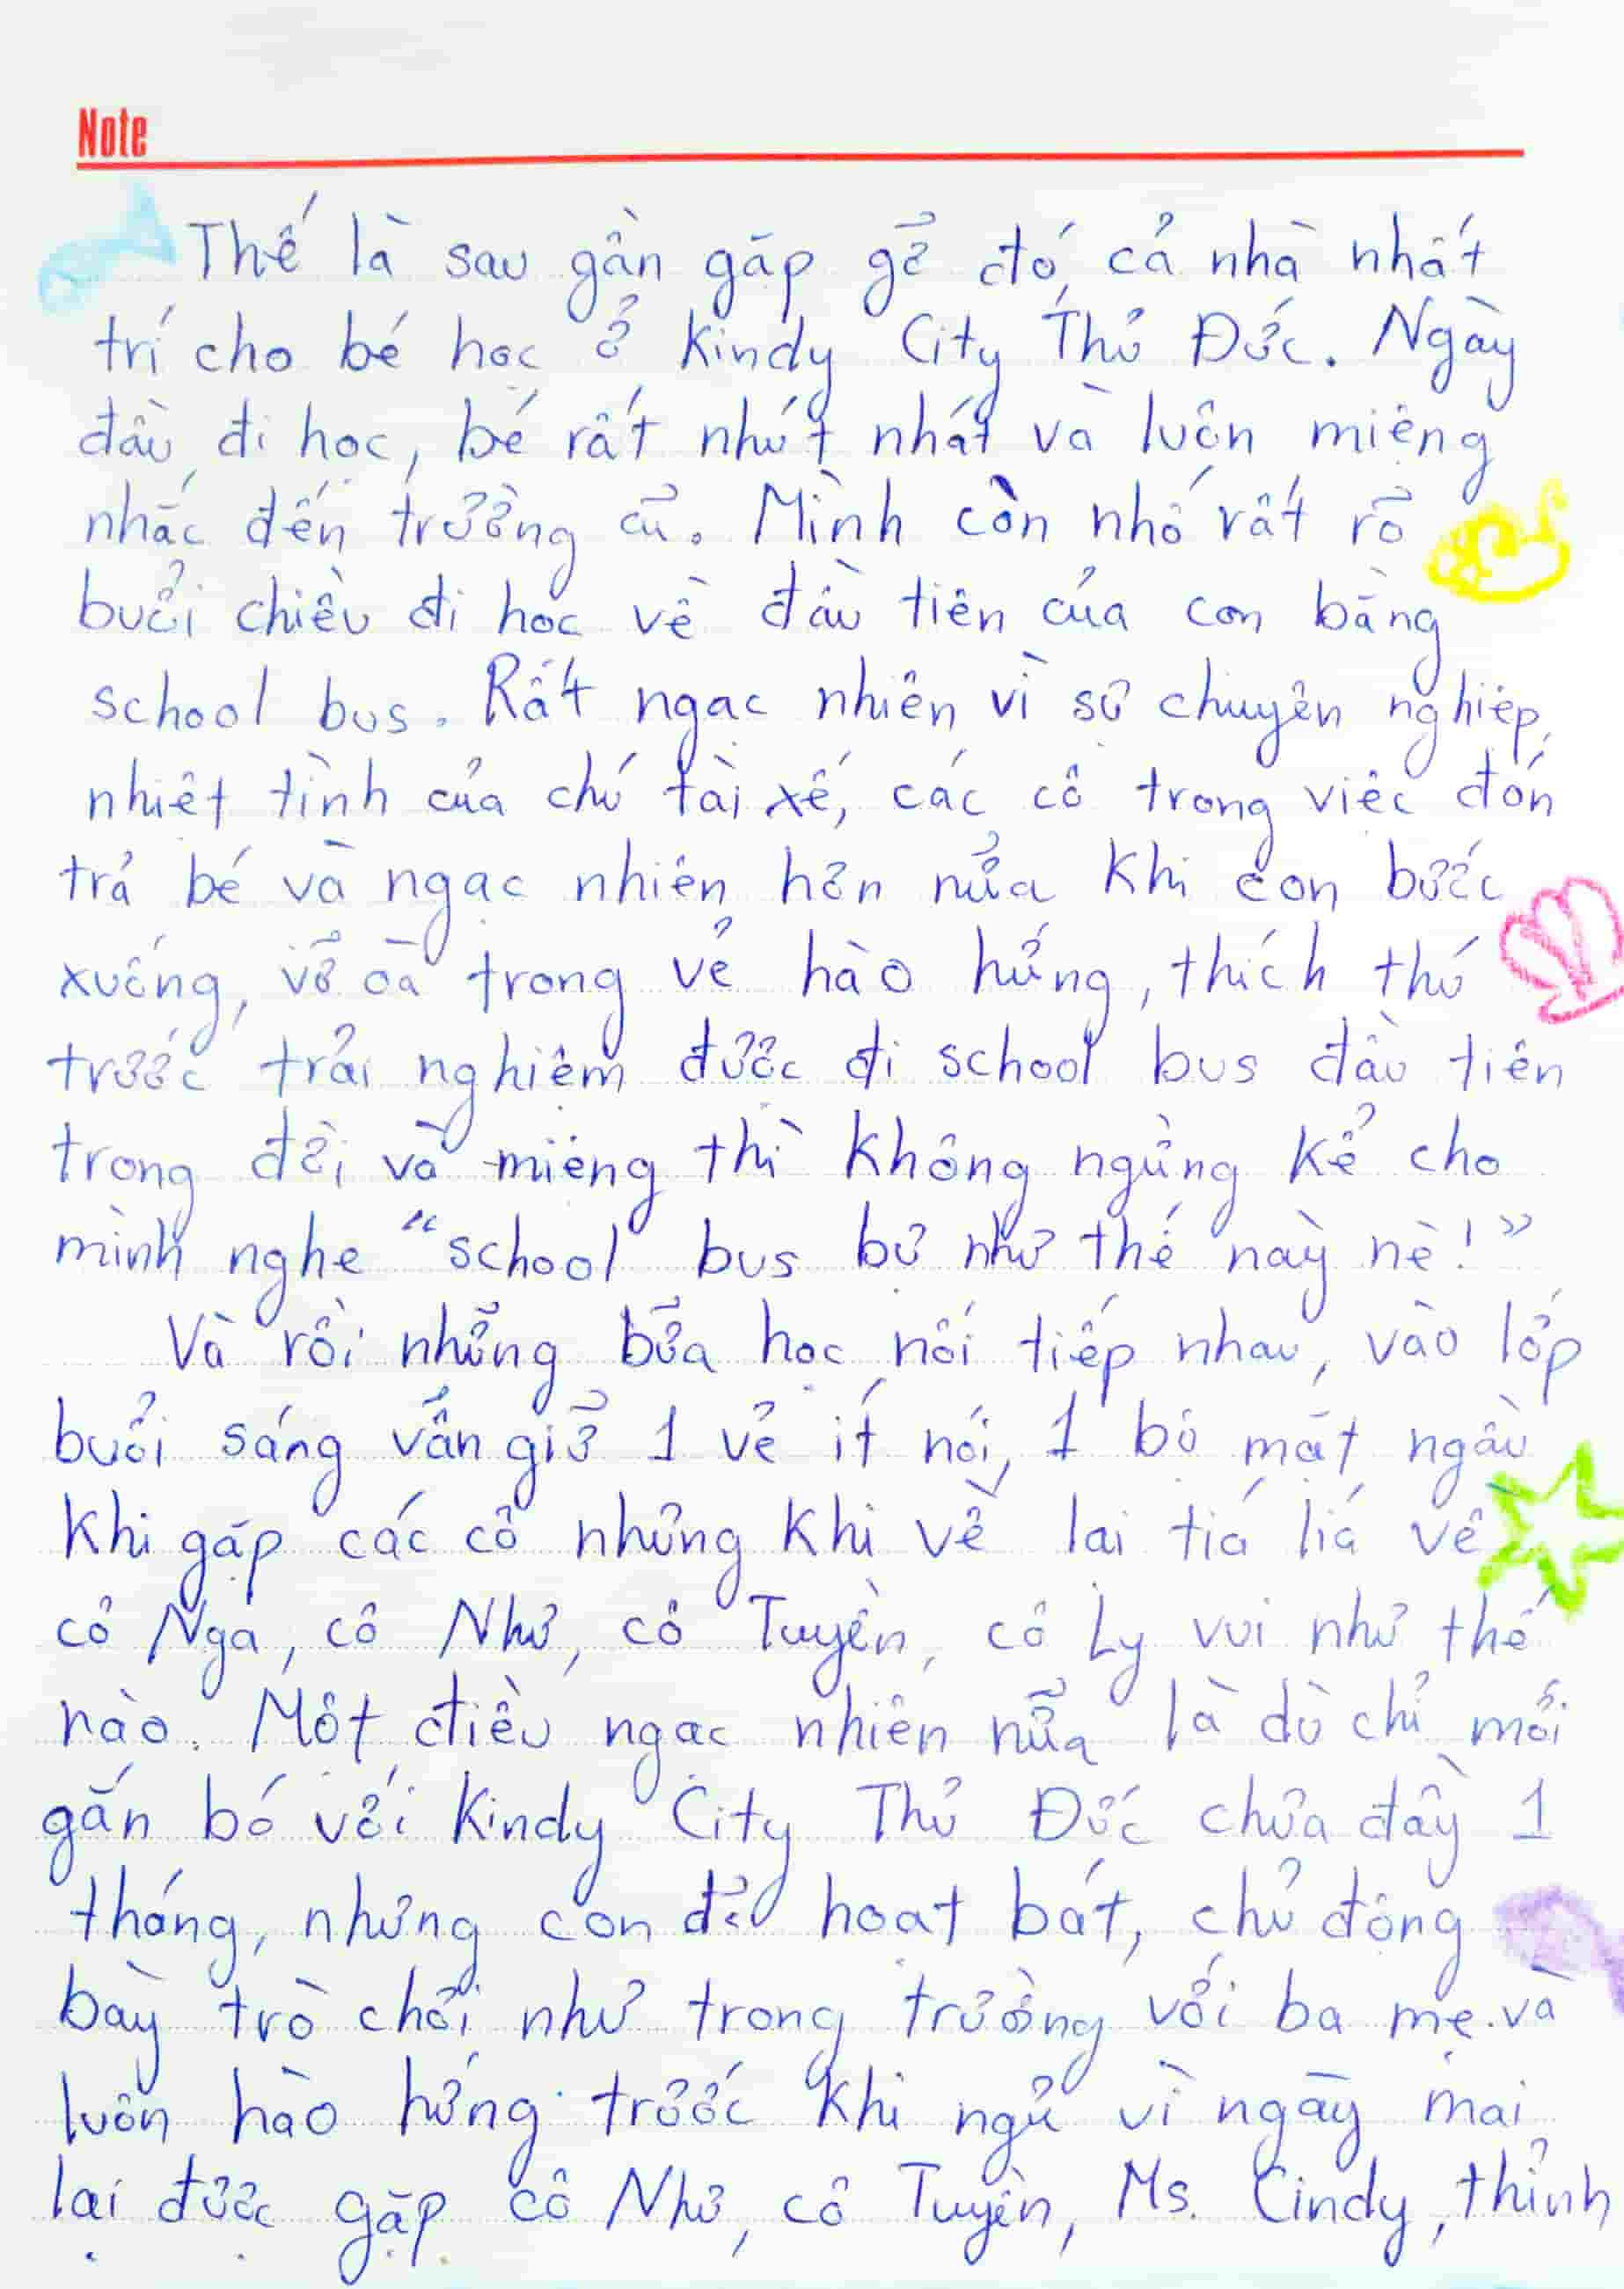 Note
Thế là sau gần gặp gỡ đó, cả nhà nhất
trí cho bé học ở Kindy City Thủ Đức. Ngày
đầu đi học, bé rất nhút nhát và luôn miệng
nhắc đến trường cũ. Mình còn nhớ rất rõ
buổi chiều đi học về đầu tiên của con bằng
school bus. Rất ngạc nhiên vì sự chuyên nghiệp,
nhiệt tình của chú tài xế, các cô trong việc đón
trả bé và ngạc nhiên hơn nữa khi con bước
xuống, vỡ oà trong vẻ hào hứng, thích thú
trước trải nghiệm được đi school bus đầu tiên
trong đời và miệng thì không ngừng kể cho
mình nghe “school bus bự như thế này nè!”
Và rồi những bữa học nối tiếp nhau, vào lớp
buổi sáng vẫn giữ 1 vẻ ít nói, 1 bộ mặt ngầu
khi gặp các cô nhưng khi về lại tía lía về
cô Nga, cô Như, cô Tuyền, cô Ly vui như thế
nào. Một điều ngạc nhiên nữa là dù chỉ mới
gắn bó với Kindy City Thủ Đức chưa đầy 1
tháng, nhưng con đã hoạt bát, chủ động
bày trò chơi như trong trường với ba mẹ và
luôn hào hứng trước khi ngủ vì ngày mai
lại được gặp cô Như, cô Tuyền, Ms. Cindy, thỉnh